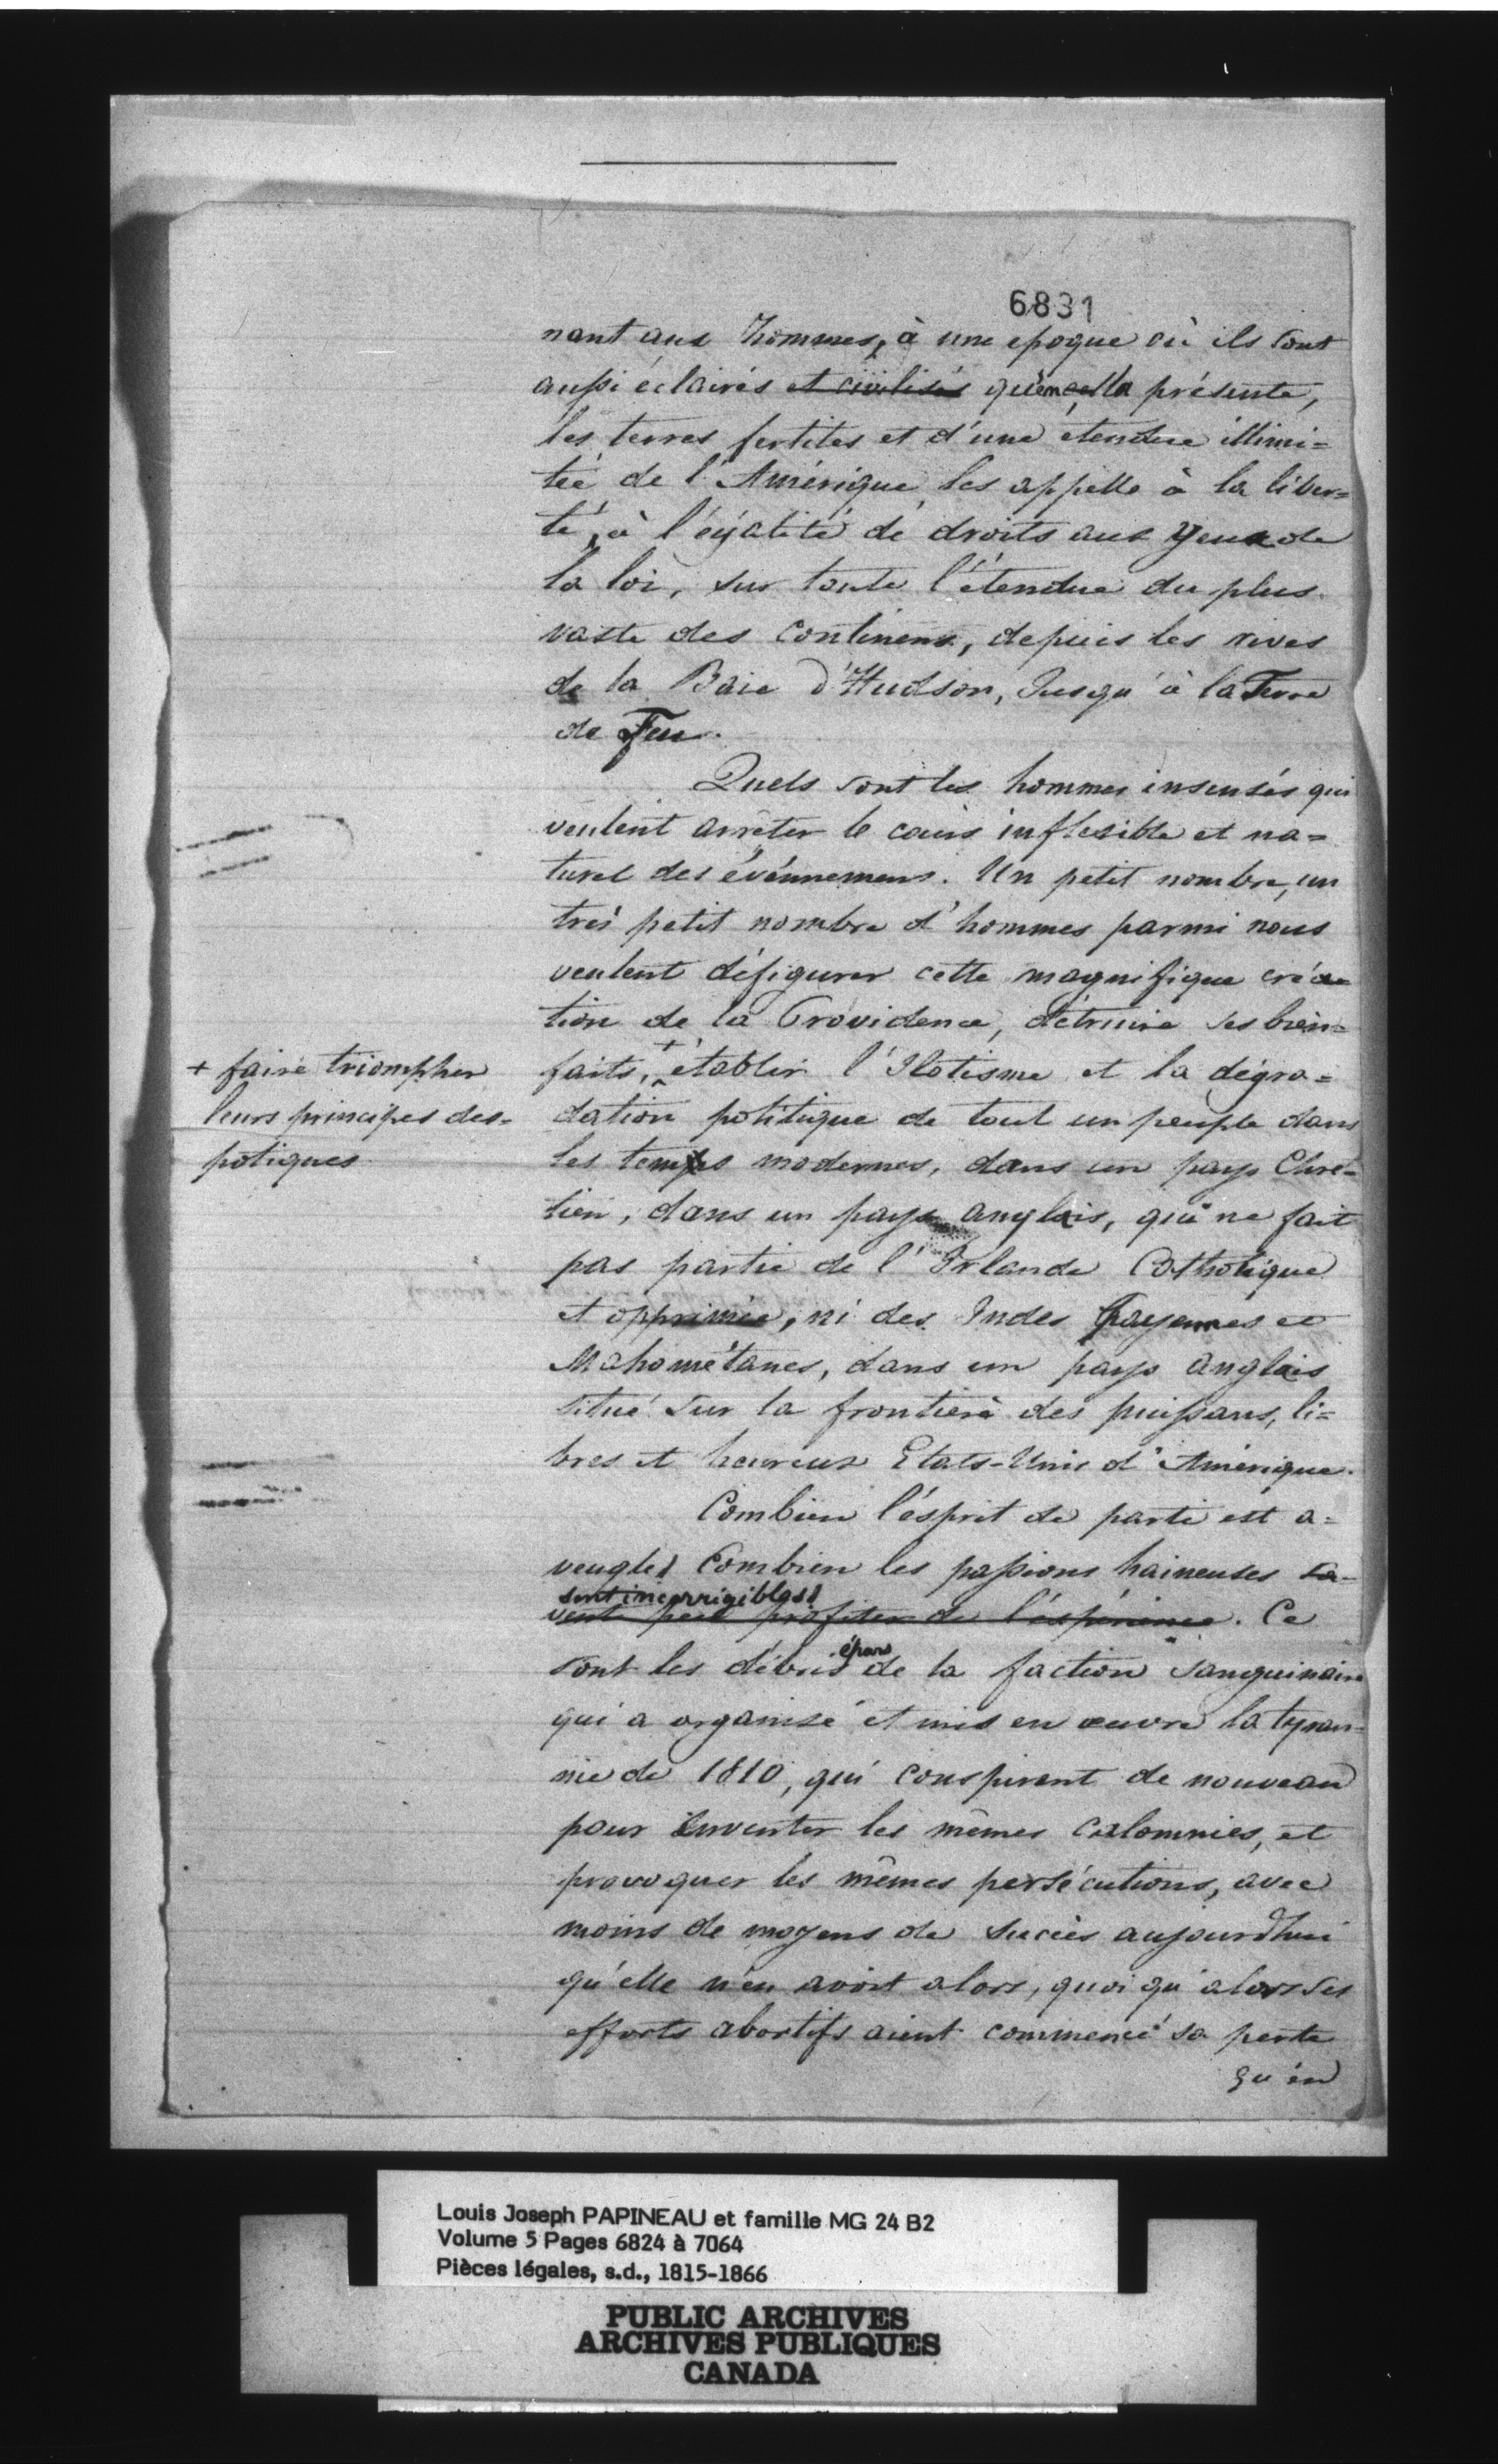 6831
nant aux hommes, à une epoque où ils sont
aussi éclairés et civilisés qu'en la présente,
les terres fertiles et d'une étendue illimi=
tée de l'Amérique les appelle à la liber=
té, à l'égalité de droits aux yeux de
la loi, sur toute l'étendue du plus
vaste des continens, depuis les rives
de la Baie d'Hudson, Jusqu'à la Terre
de Feu.
Quels sont les hommes insensés qui
veulent arrêter le cours inflexible et na=
turel des événnemens. Un petit nombre, un
très petit nombre d'hommes parmi nous
veulent défigurer cette magnifique créa=
tion de la Providence, détruire ses bien=
faits, + établir l'Ilotisme et la dégra=
+ faire triompher
leurs principes des=
potiques
dation politique de tout un peuple dans
les temps modernes, dans un pays Chré=
tien, dans un pays anglais, qui ne fait
pas partie de l'Irlande Catholique
et opprimée, ni des Indes Payennes et
Mahométanes, dans un pays anglais
situé sur la frontière des puissans, li=
bres et heureux Etats-Unis d'Amérique.
Combien l'ésprit de parti est a=
veugle! Combien les passions haineuses sa=
sont incorrigibles!
vent peu profiter de l'expérience. Ce
sont les débris épars de la faction sanguinaire
qui a organisé et mis en œuvre la tyran=
nie de 1810, qui conspirent de nouveau
pour inventer les mêmes calomnies, et
provoquer les mêmes persécutions, avec
moins de moyens de succès aujourdhui
qu'elle n'en avoit alors, quoi qu'alors ses
efforts abortifs aient commencé sa perte
qu'en
Louis Joseph PAPINEAU et famille MG 24 B2
Volume 5 Pages 6824 à 7064
Pièces légales, s.d., 1815-1866
PUBLIC ARCHIVES
ARCHIVES PUBLIQUES
CANADA